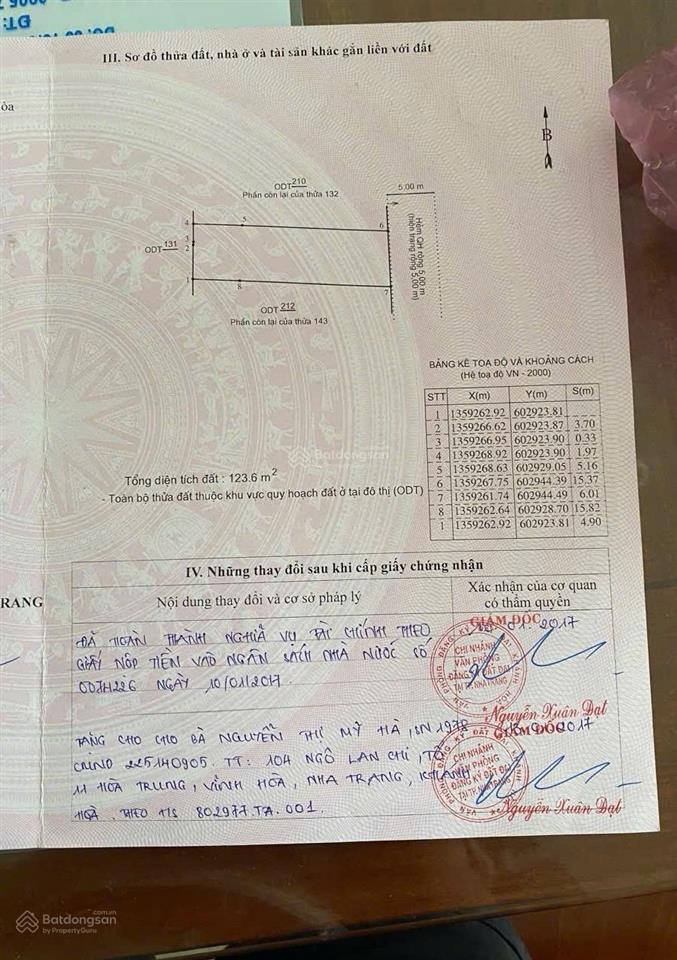 ĐT:
III. Sơ đồ thửa đất, nhà ở và tài sản khác gắn liền với đất
òa
B
ODT 210
Phần còn lại của thửa 132
5,00 m
4
5
6
3
2
ODT 131
1
8
7
Hẻm QH rộng 5,00 m
(hiện trạng rộng 5,00 m)
ODT 212
Phần còn lại của thửa 143
BẢNG KÊ TOẠ ĐỘ VÀ KHOẢNG CÁCH
(Hệ toạ độ VN - 2000)
STT X(m) Y(m) S(m)
1 1359262.92 602923.81
2 1359266.62 602923.87 3.70
3 1359266.95 602923.90 0.33
4 1359268.92 602923.90 1.97
5 1359268.63 602929.05 5.16
6 1359267.75 602944.39 15.37
7 1359261.74 602944.49 6.01
8 1359262.64 602928.70 15.82
1 1359262.92 602923.81 4.90
Batdongsan
Tổng diện tích đất : 123.6 m2
- Toàn bộ thửa đất thuộc khu vực quy hoạch đất ở tại đô thị (ODT)
IV. Những thay đổi sau khi cấp giấy chứng nhận
RANG
Nội dung thay đổi và cơ sở pháp lý
Xác nhận của cơ quan
có thẩm quyền
ĐÃ HOÀN THÀNH NGHĨA VỤ TÀI CHÍNH THEO
GIẤY NỘP TIỀN VÀO NGÂN SÁCH NHÀ NƯỚC SỐ
NGÀY 10/01/2017.
2017
GIÁM ĐỐC
CHI NHÁNH
VĂN PHÒNG
ĐĂNG KÝ ĐẤT ĐAI
TẠI TP.NHA TRANG
Nguyễn Xuân Đạt
TẶNG CHO CHO BÀ NGUYỄN THỊ MỸ HÀ, SN 1978
CMND 225140905. TT: 104 NGÔ LAN CHI, TỔ
11 HÒA TRUNG, VĨNH HÒA, NHA TRANG, KHÁNH
HÒA. THEO HS 802977.TA.001.
2017
GIÁM ĐỐC
CHI NHÁNH
VĂN PHÒNG
ĐĂNG KÝ ĐẤT ĐAI
TẠI TP.NHA TRANG
Nguyễn Xuân Đạt
Batdongsan.com.vn
by PropertyGuru